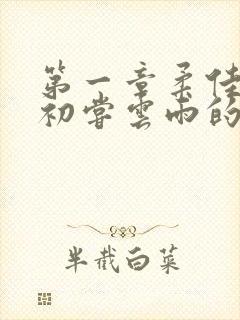 第一章柔佳
初尝云雨的
半截白菜